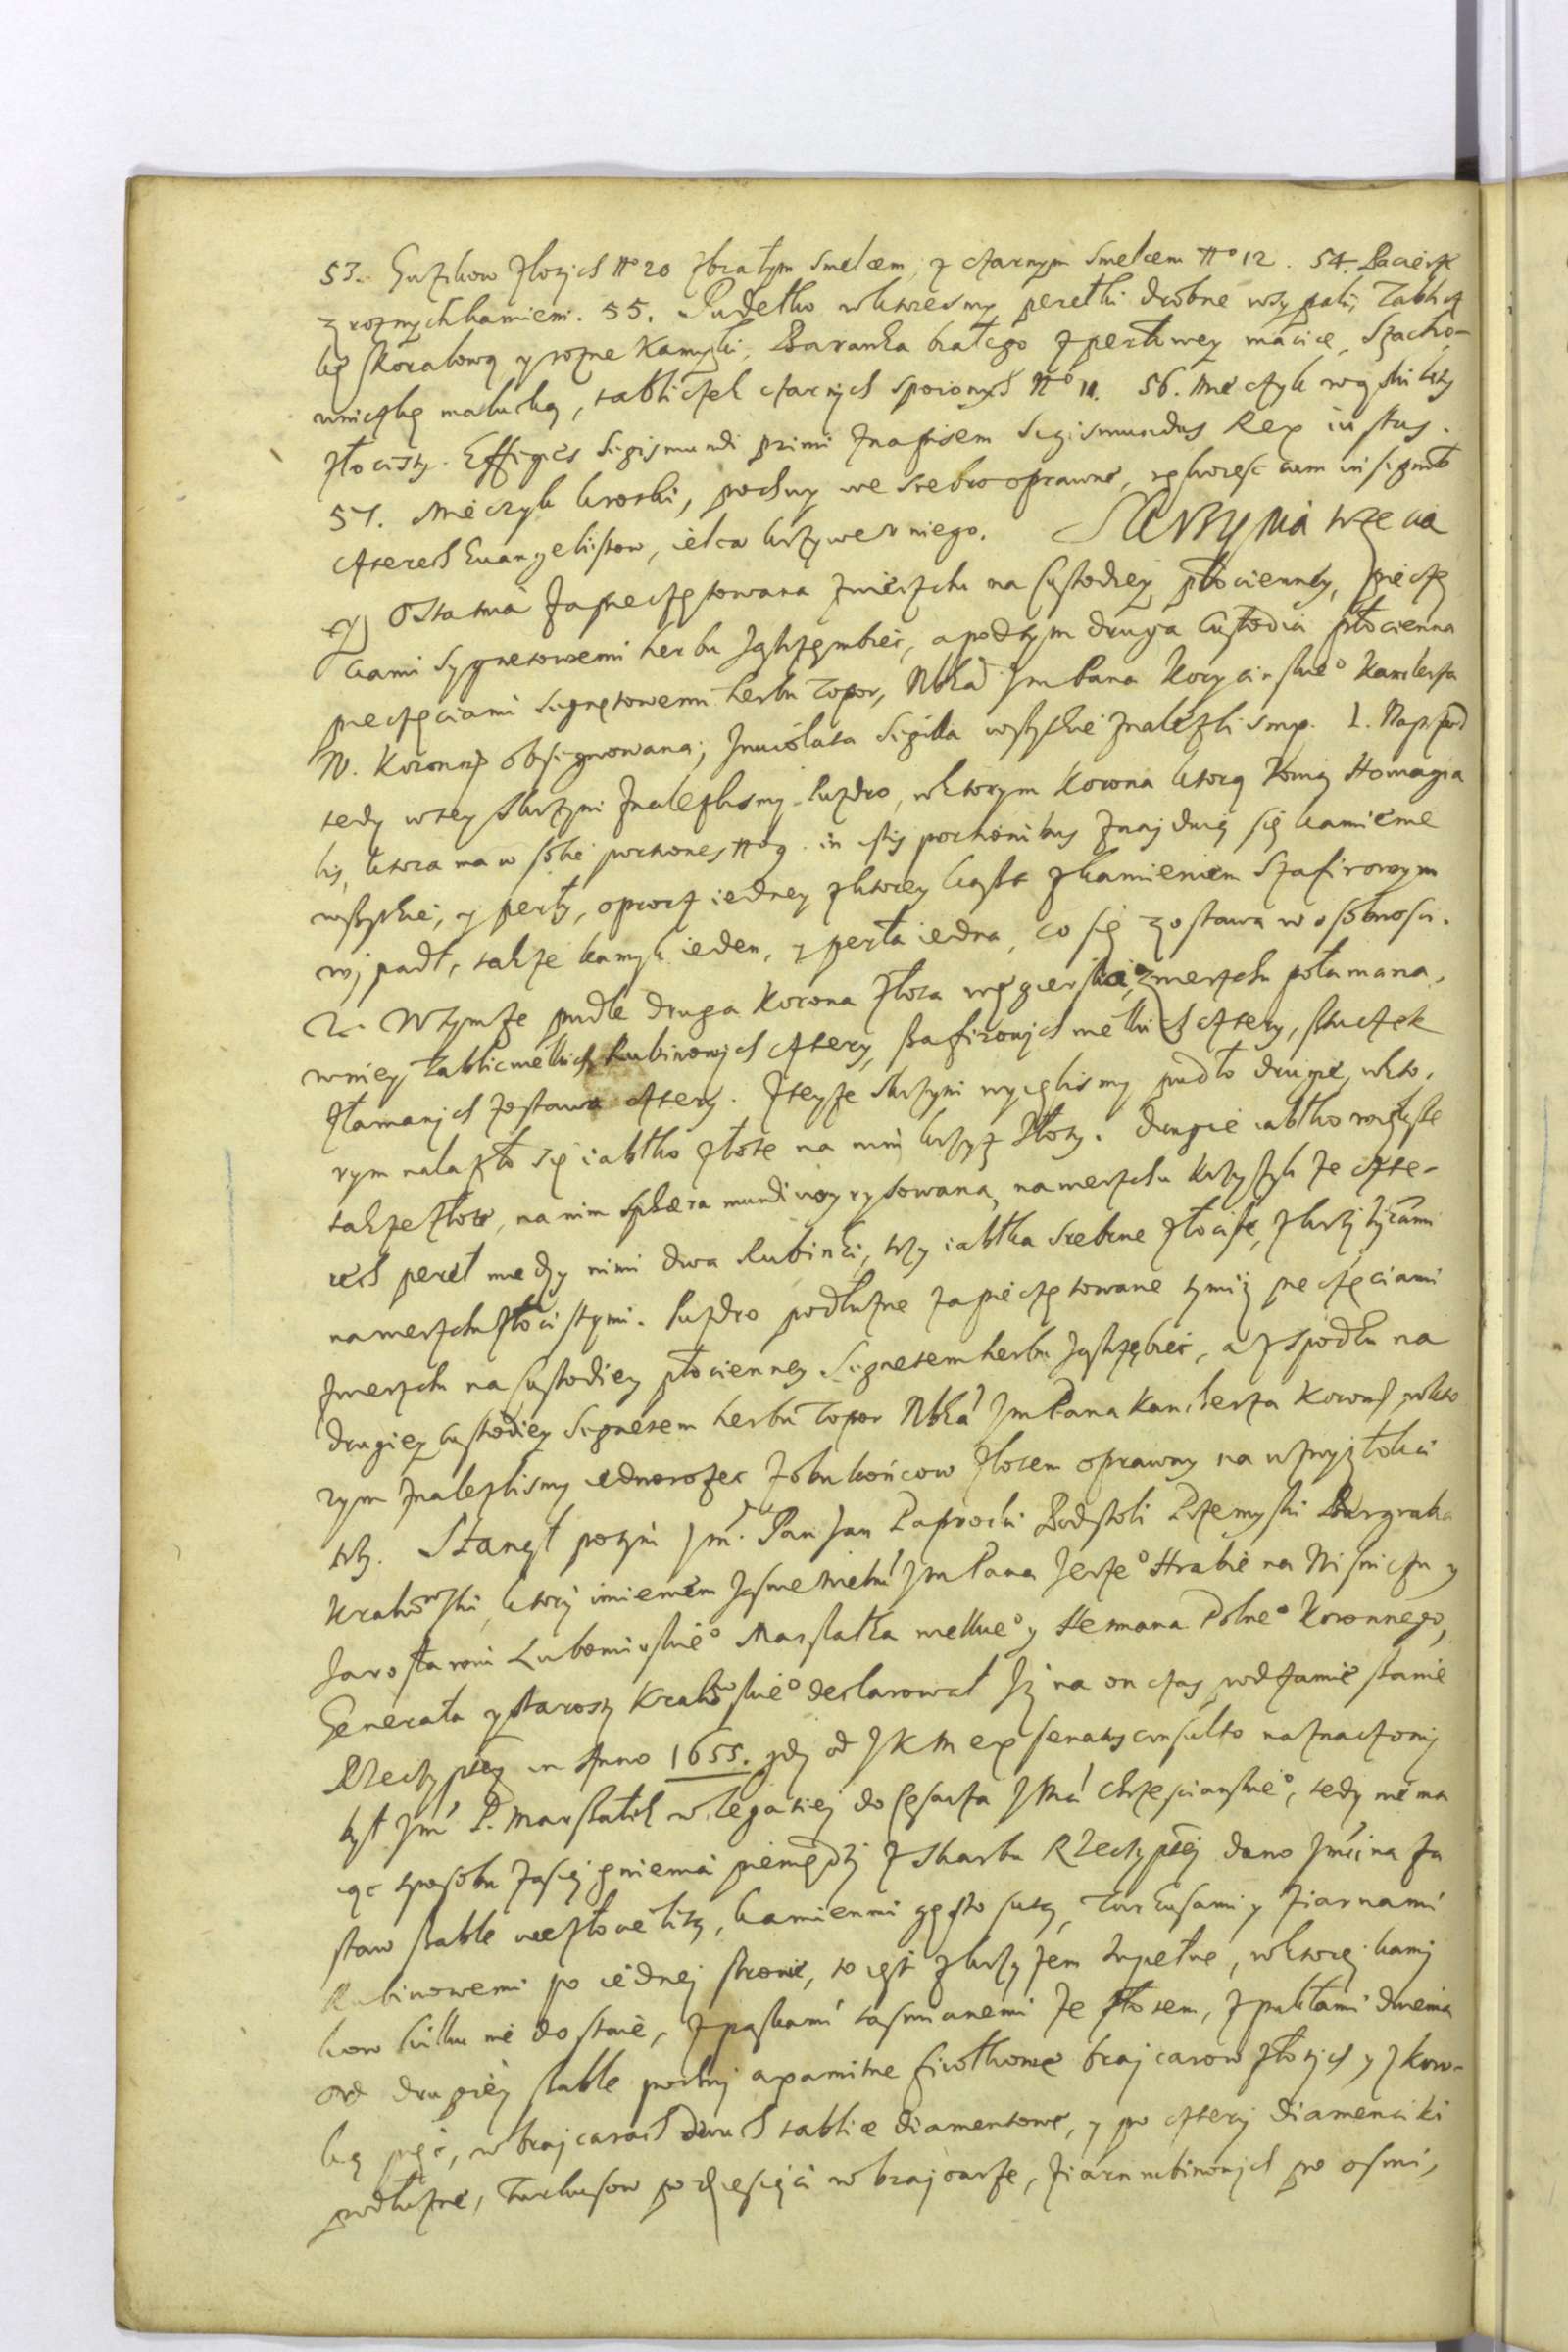 53. Guzikow złotych No 20 z białym smelcem, z czarnym smelcem No 12. 54. Pacierze
z rożnych kamieni. 55. Pudełko w ktoresmy perełki drobne wsypali, tablicz
kę skoralową y rożne kamyszki, Baranka białego z perłowey macice, Szacho-
wniczkę maluchą, tabliczek czarnych sporomych No 11. 56. Mieczyk węgski
złocisty. Effigies Sigismundi primi z napisem Sigismundus Rex iustus.
57. Mieczyk kroski, pochwy we srebro oprawne, cum insigniis
czterech Euangelistow, ielca krzywe u niego. Skrzynia trzecia
y Ostatnia zapieczętowana z wierzchu na Custodiey płocienney, pieczę
ciami sygnetowemi herbu Jastrzęmbiec, a pod tym druga Custodia płocienna
pieczęciami sygnetowemi herbu Topor, Jm Pana Korycinskieo Kanclerza
W. Koronneo obsignowana, Inviolata Sigilla wszystkie znalezlismy. 1. Naprzod
tedy w tey skrzyni znalezlismy Puzdro, w ktorym Korona ktorą zowią Homagia
lis, ktora ma w sobie portiones No 9. in istis portionibus znajduią się kamienie
wszystkie, y perły, oprocz iedney z ktorey kaszt z kamieniem Szafirowym
wypadł, także kamyk ieden, y perła iedna, co się zostawa w osobnosci.
2. W tymze pudle druga Korona złota węgierska, z wierzchu połamana,
w niey tablic wielkich Rubinowych cztery, szafirowych wielkich cztery, sztuczek
złamanych zostawa cztery. Z teyze skrzyni wyięlismy pudło drugie, w kto,
rym nalazło się iabłko złote na nim krzyż złoty. Drugie iabłko
także złote, na nim sphaera mundi wyrysowana, na wierzchu krzyżyk ze czte-
rech pereł między nimi dwa Rubinki, trzy iabłka srebrne złociste, z krzyżykami
na wierzchu złocistymi. Puzdro podłużne zapieczętowane tymiż pieczęciami
z wierzchu na Custodiey płocienney Signetem herbu Jastrzębiec, a z spodku na
drugiey Custodiey Signetem herbu Topor Jm Pana Kanclerza Koronneo, w kto
rym znalezlismy iednorożec z obu końcow złotem oprawny na wzwyż łokci
trzy. Stanął potym Jm. Pan Jan Paprocki Podstoli Przemyski Burgrabia
Krakowski, ktory imieniem Jasnie Wielmo Jm Pana Jerzeo Hrabie na Wisniczu y
Jarosławiu Lubomirskieo Marszałka wielkieo y Hetmana Polneo Koronnego,
Generała y Starosty Krakowskieo declarował Iż na on czas, w zamieszanie
Rzeczyptey in Anno 1655. gdy od JKM ex senatus consulto naznaczony
był Jm P. Marszałek w legatiey do Cesarza JMci Chrzescianskieo, tedy nie ma
iąc sposobu zasiągnienia pieniędzy z skarbu Rzeczyptey dano Jmci na za
staw szable weszłocie, kamienmi gęsto, Turkusami y ziarnami
Rubinowemi po iednej stronie, to iest z krzyżem zupełne, w ktorej kamy
kow kilku nie dostaie, z paskami tasmianemi ze złotem, z pukłami dwiema
od drugiey szable pochwy axamitne fiołkowe brajcarow złotych y z
pięć, w brajcarach dwuch tablice diamentowe, y po cztery diamenciki
podłużne, Turkusow po dziesięci w brajcarze, ziarn rubinowych po osmi,